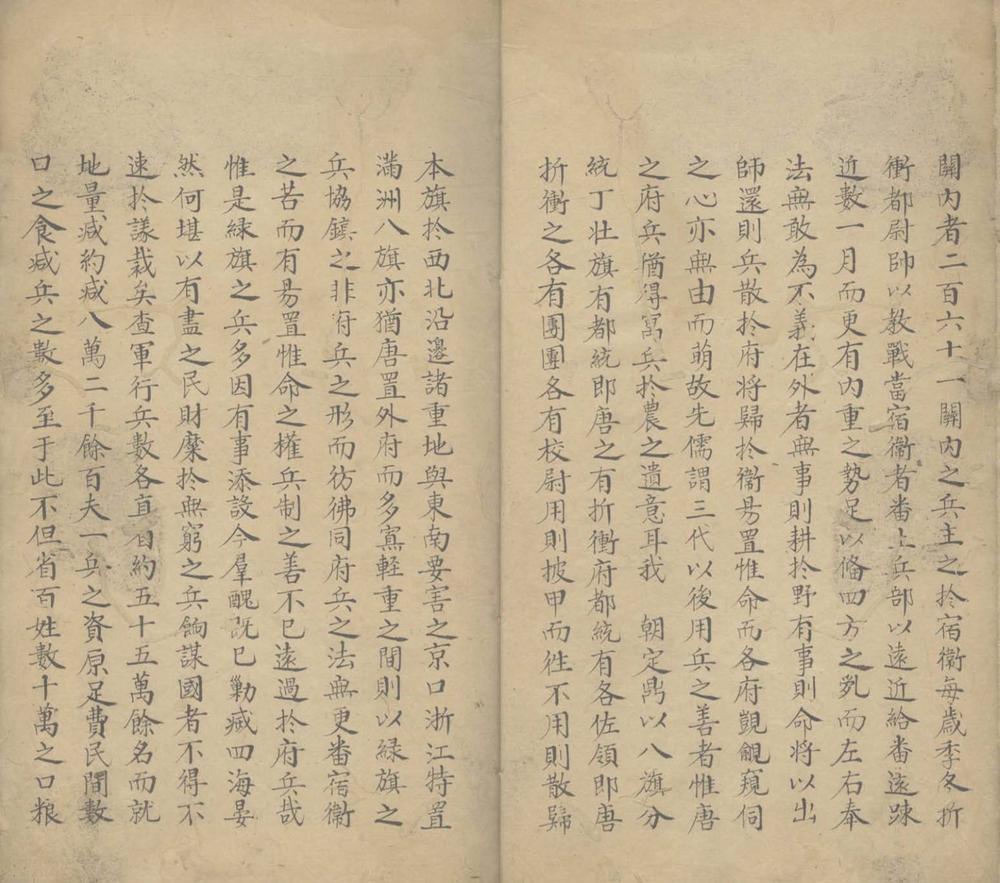 關內者二百六十一關內之兵主之於宿衞每歲季冬折
衝都尉帥以教戰當宿衞者番上兵部以遠近給番遠踈
近數一月而更有內重之勢足以俻四方之亂而左右奉
法無敢為不義在外者無事則耕於野有事則命將以出
師還則兵散於府將歸於衞易置惟命而各府覬覦窺伺
之心亦無由而萌故先儒謂三代以後用兵之善者惟唐
之府兵猶得寓兵於農之遺意耳我　朝定鼎以八旗分
統丁壯旗有都統即唐之有折衝府都統有各佐領即唐
折衝之各有團團各有校尉用則披甲而徃不用則散歸
本旗於西北沿邊諸重地與東南要害之京口浙江特置
滿洲八旗亦猶唐置外府而多寡輕重之間則以緑旗之
兵協鎮之非府兵之形而彷彿同府兵之法無更番宿衞
之苦而有易置惟命之權兵制之善不已遠過於府兵哉
惟是緑旗之兵多因有事添設今羣醜旣已勦滅四海晏
然何堪以有盡之民財糜於無窮之兵餉謀國者不得不
速於議裁矣查軍行兵數各直省約五十五萬餘名而就
地量减約减八萬二千餘百夫一兵之資原足費民間數
口之食减兵之數多至于此不但省百姓數十萬之口粮